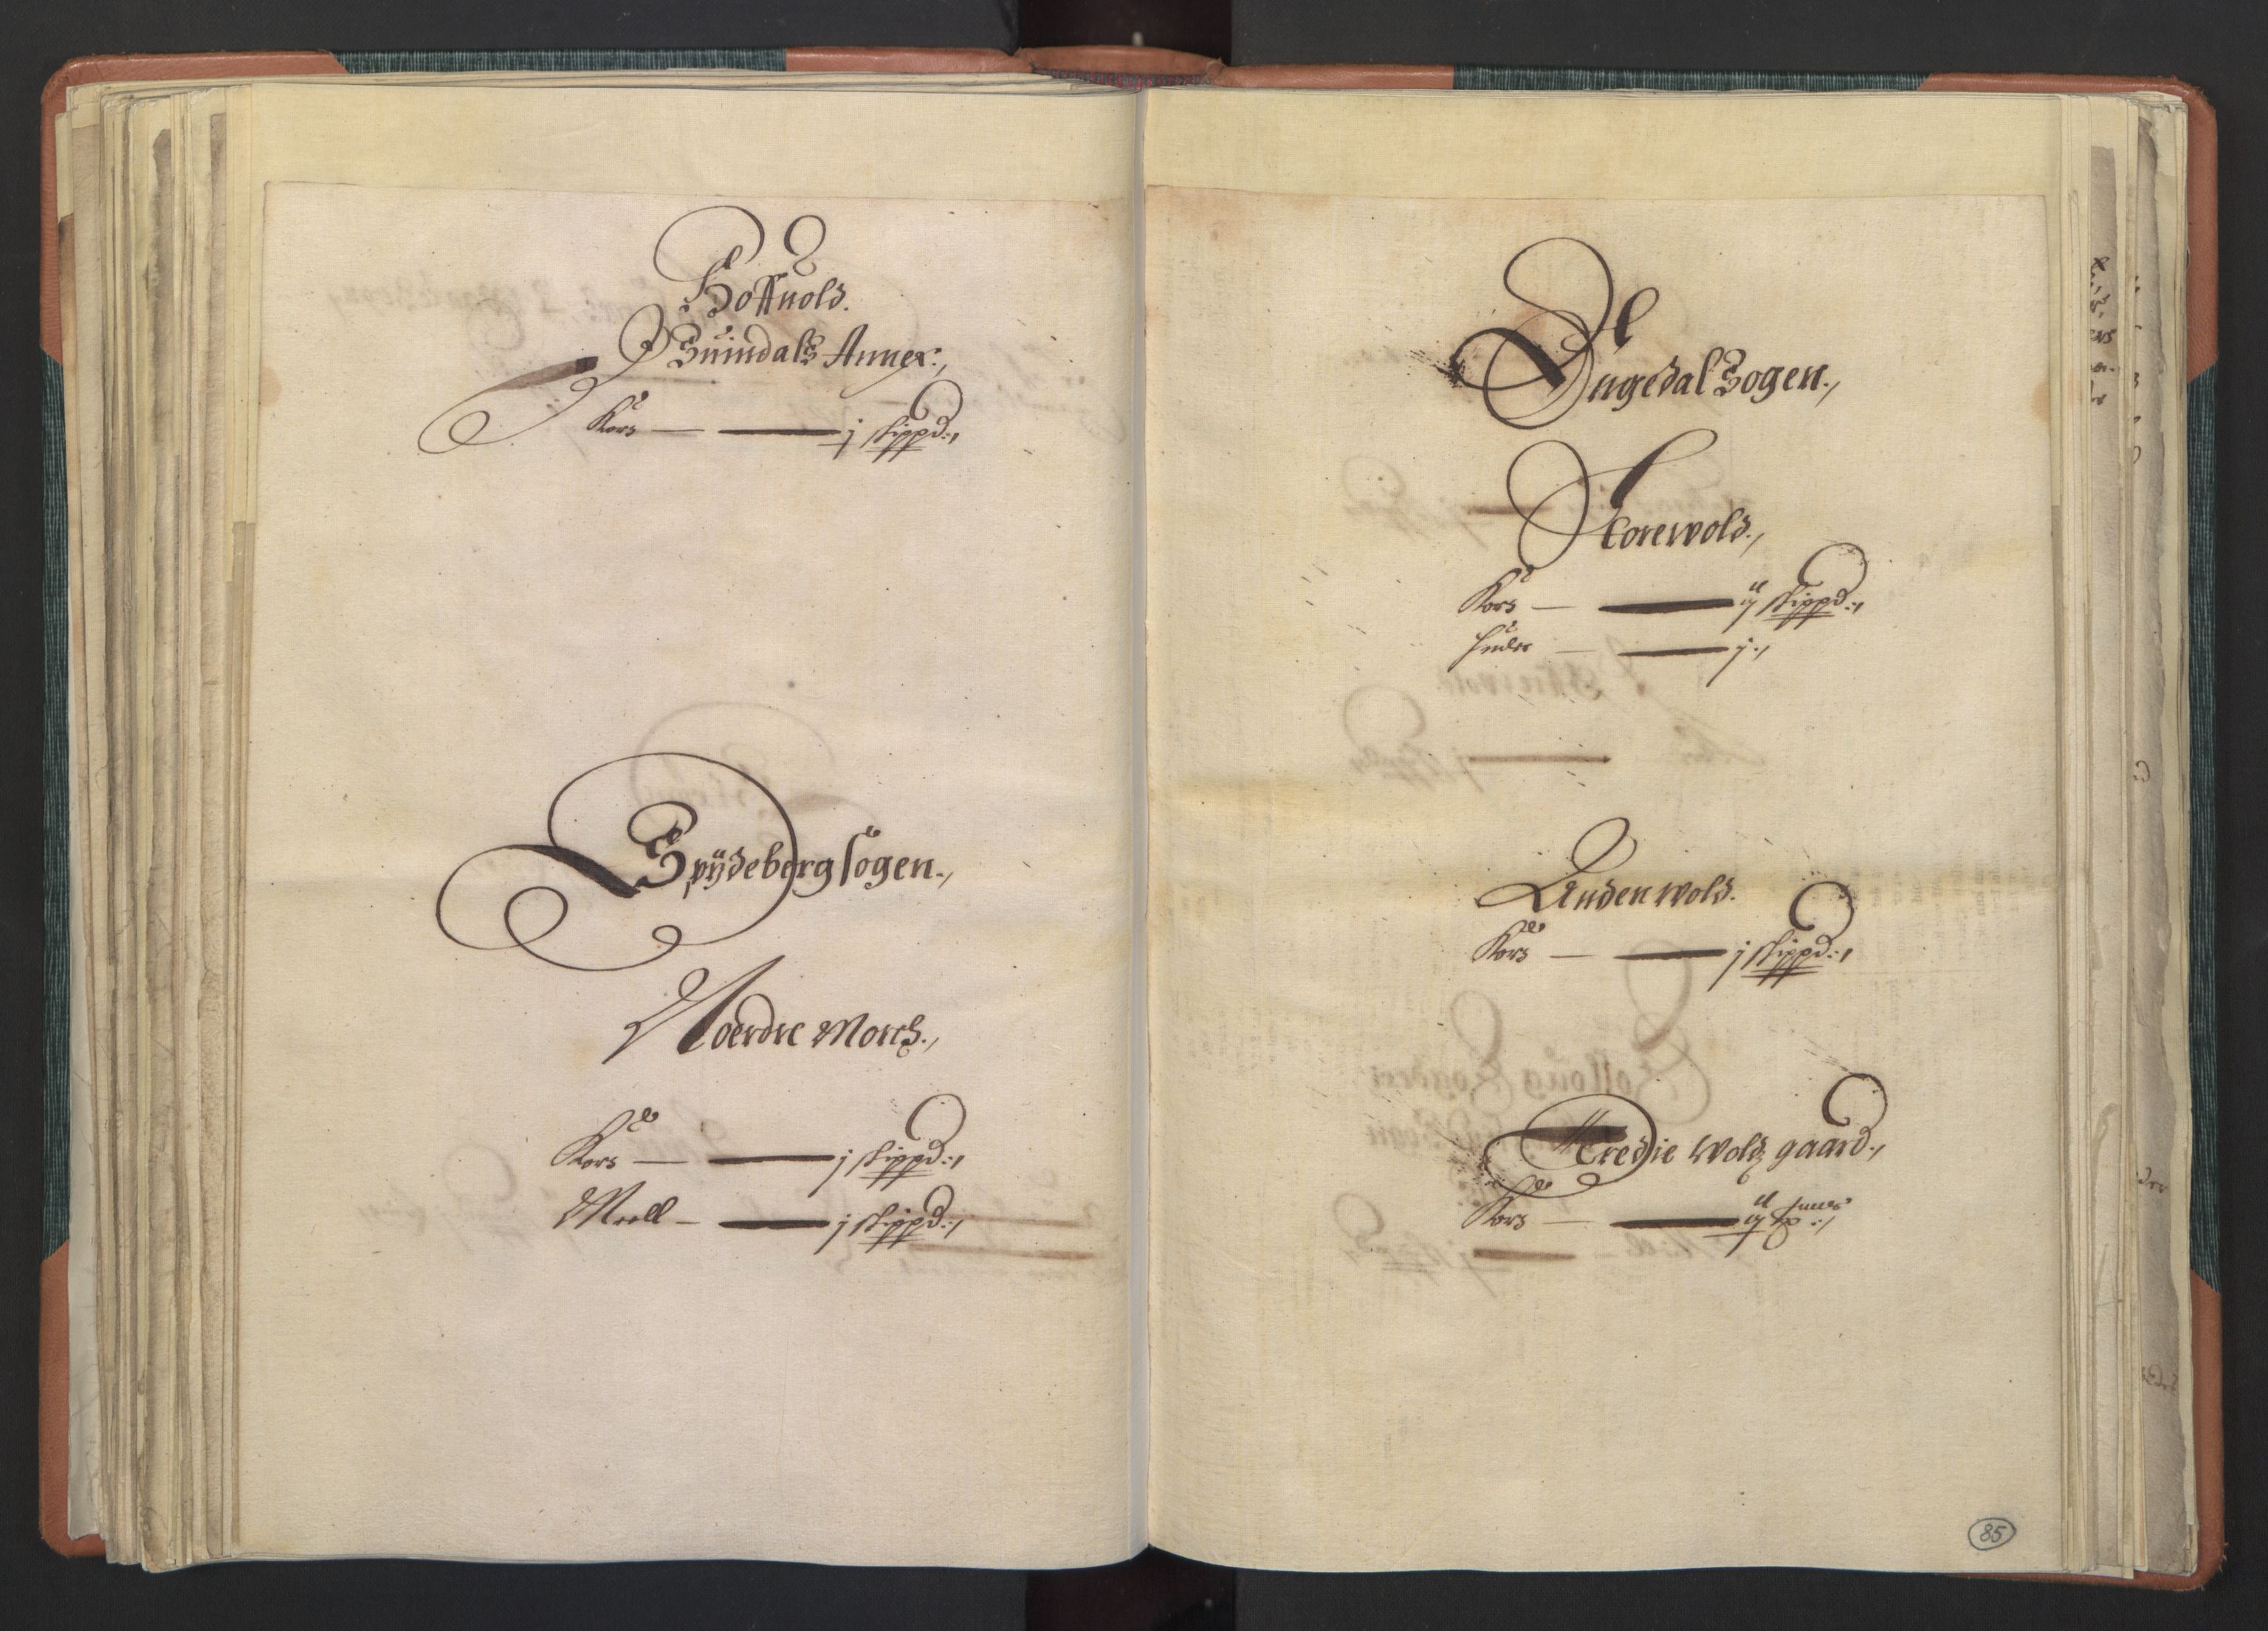 Hoffuold.
Suindals Annex:,
Kors — j skippd:,
Spÿdeberg sogen.,
Noerdre Morck.,
Kors — j skippd:,
Meell — j skippd:,
Ingedal Sogen.,
Storewold.,
Kors — ij skippd:,
Huder — j.,
Anden wold.
Kors — j skippd:,
Tredie Woldz gaard.,
Kors — ij
85